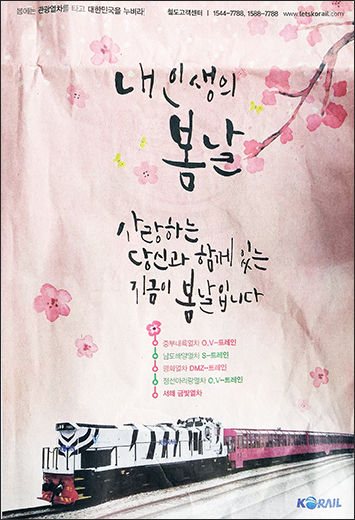 봄에는 관광열차를 타고 대한민국을 누벼라!
철도고객센터 | 1544-7788, 1588-7788 www.letskorail.com
내 인생의
봄날
사랑하는
당신과 함께 있는
지금이 봄날입니다
중부내륙열차 O,V-트레인
남도해양열차 S-트레인
평화열차 DMZ-트레인
정선아리랑열차 O,V-트레인
새해 금빛열차
KORAIL